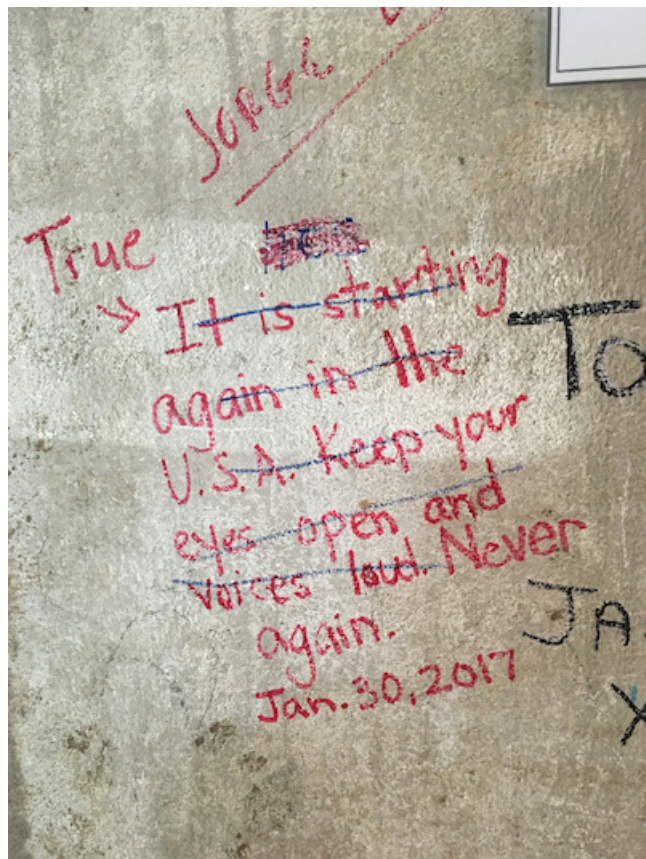 JORGE
True
It is starting
again in the
U.S.A. Keep your
eyes open and
voices loud. Never
again.
Jan.30,2017
TO
JA
X